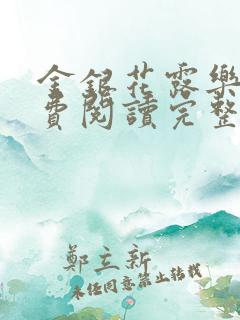 金銀花露樂
費閱讀完整
鄭立新
未經同意禁止轉載